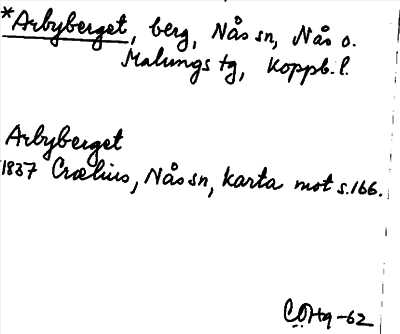 *Arbyberget, berg, Nås sn, Nås o.
Malungs tg, Koppb. l.
Arbyberget
1837 Crælius, Nås sn, karta mot s. 166.
COHg -62